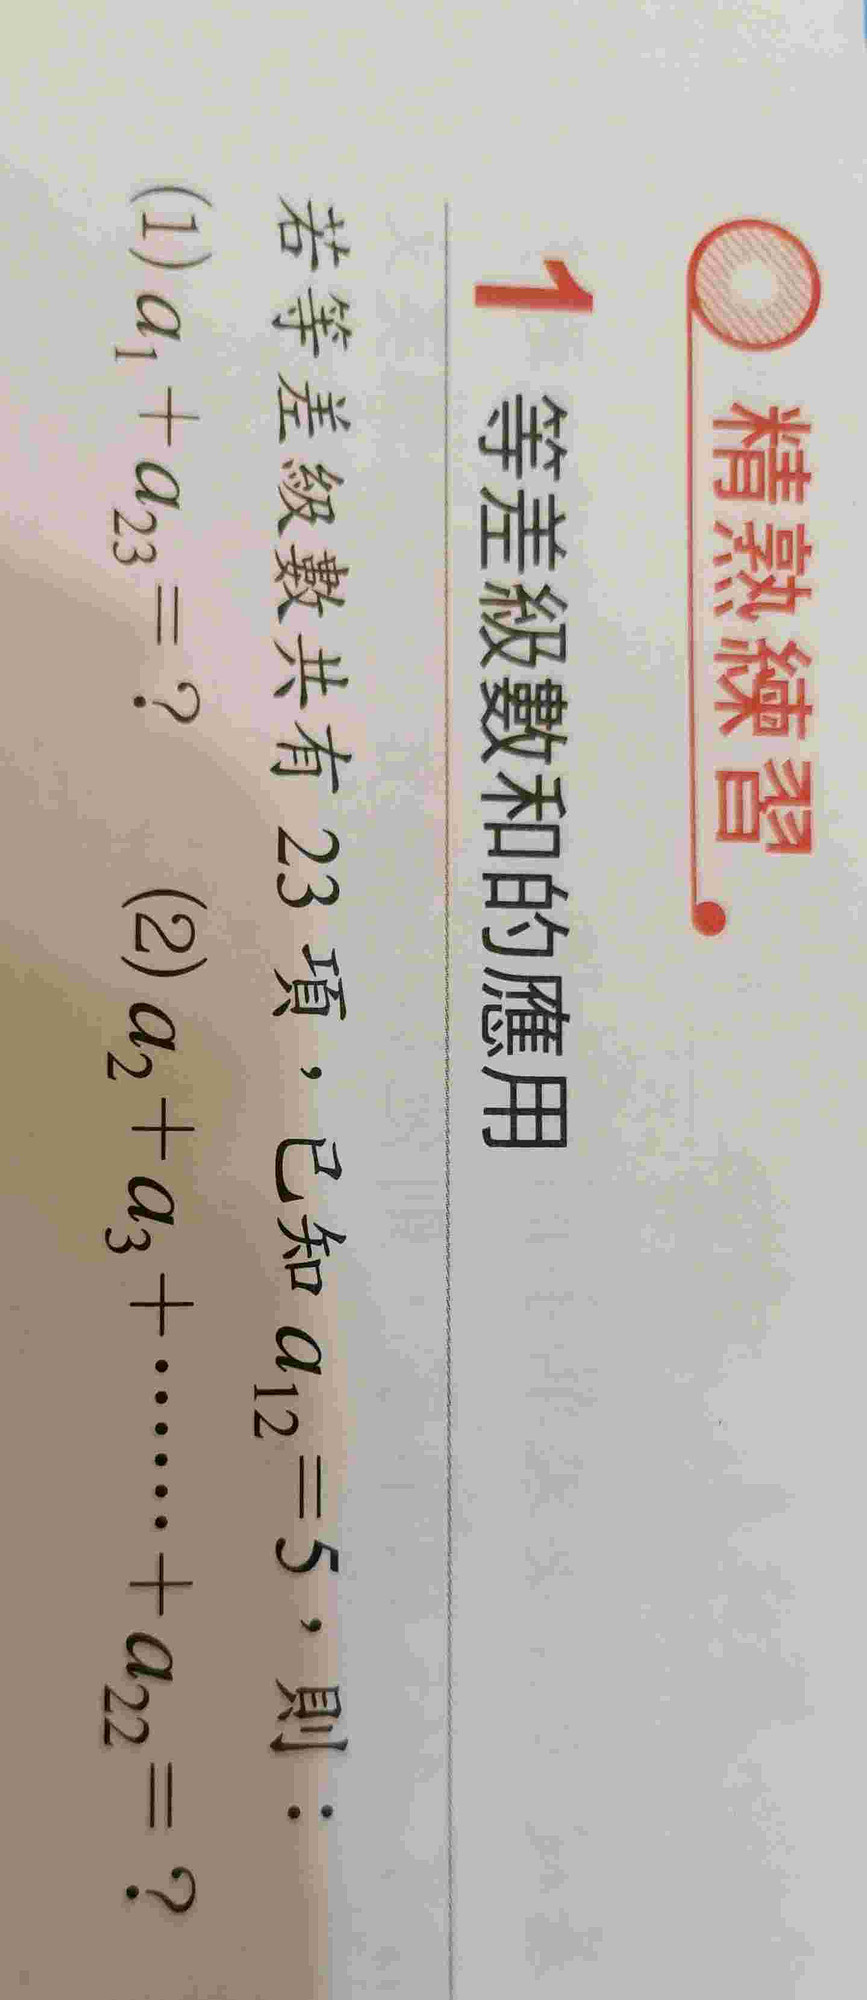 精熟練習
1 等差級數和的應用
若等差級數共有 23 項，已知 a₁₂＝5，則：
(1) a₁＋a₂₃＝？ (2) a₂＋a₃＋……＋a₂₂＝？